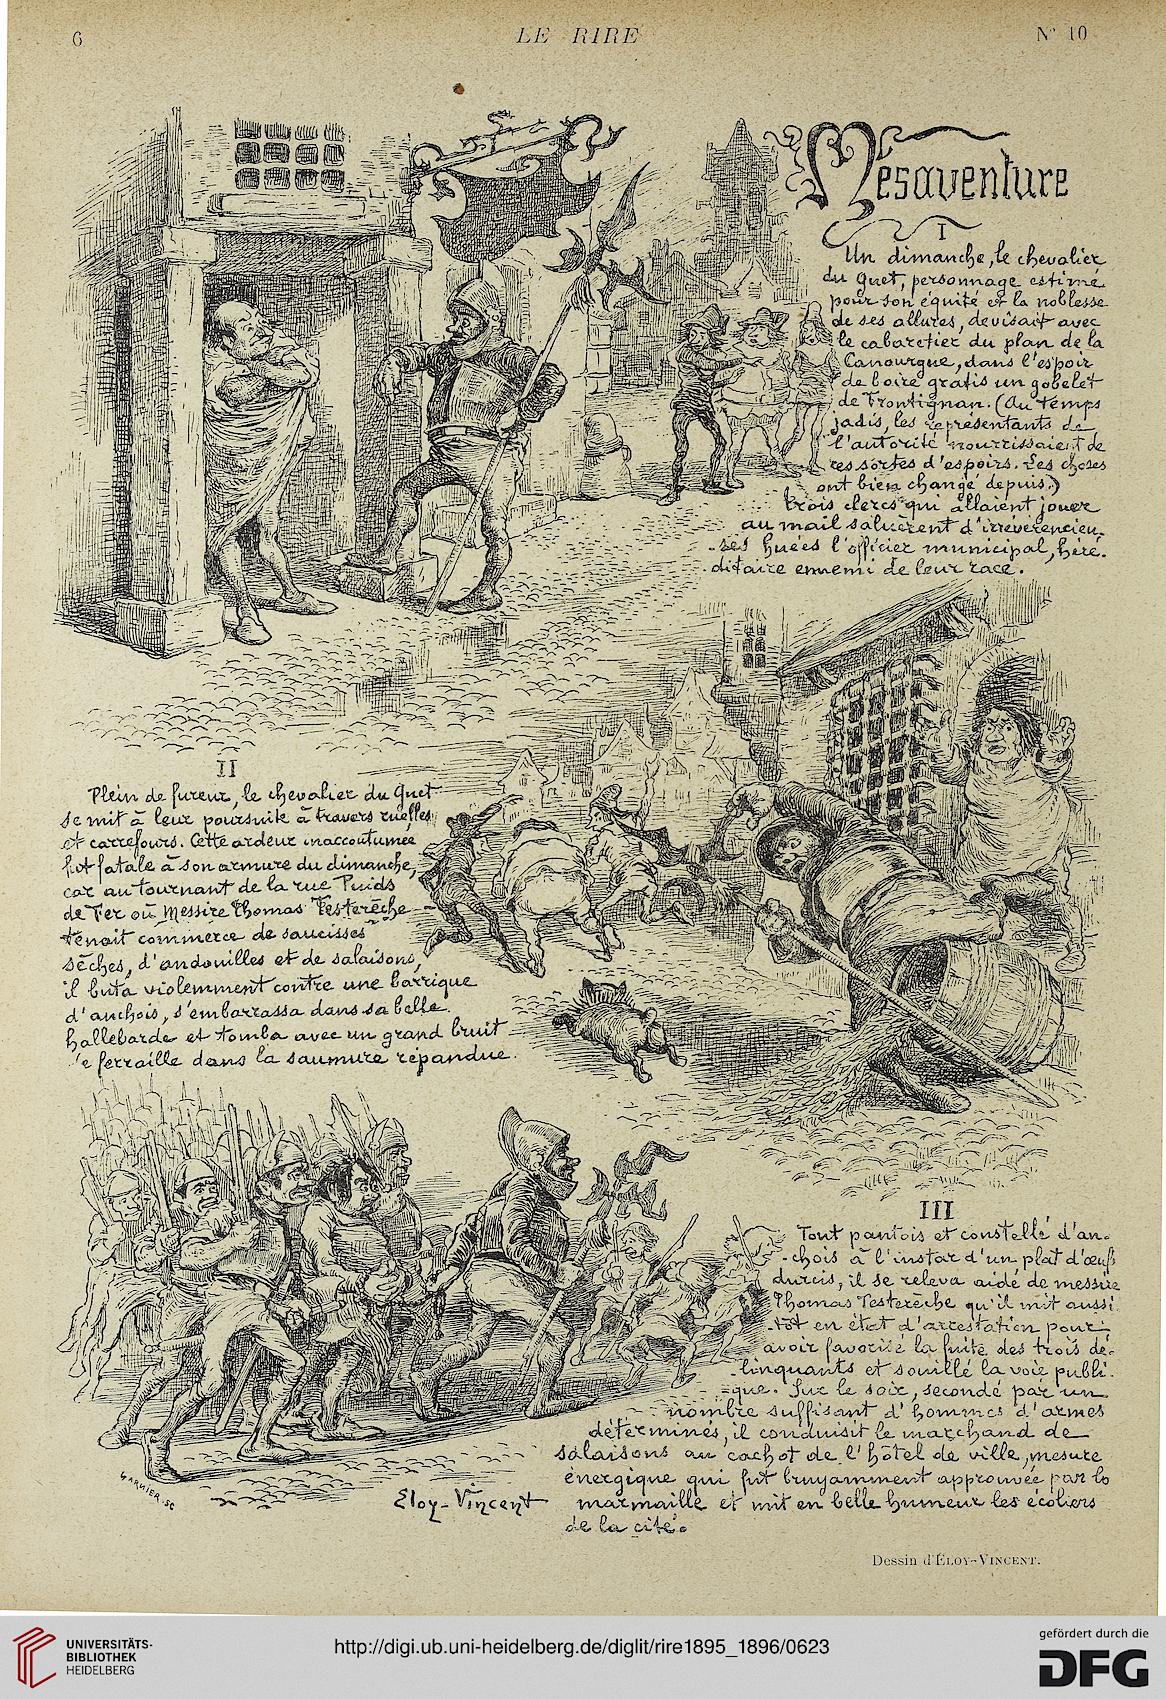 6
LE RIRE
N° 10
Mésaventure
I
Un dimanche, le chevalier
du Guet, personnage estimé
pour son équité et la noblesse
de ses allures, devisait avec
le cabaretier du plan de la
Canourgue, dans l'espoir
de boire gratis un gobelet
de Frontignan. (Au temps
jadis, les représentants de
l'autorité nourrissaient de
ces sortes d'espoirs. Les choses
ont bien changé depuis.)
Trois clercs qui allaient jouer
au mail saluèrent d'irrévérencieu-
ses huées l'officier municipal, héré-
ditaire ennemi de leur race.
II
Plein de fureur, le chevalier du Guet
se mit à leur poursuite à travers ruelles
et carrefours. Cette ardeur inaccoutumée
fut fatale à son armure du dimanche,
car au tournant de la rue Puids
de Fer où Messire Thomas Testerêche
tenait commerce de saucisses
sèches, d'andouilles et de salaisons,
il buta violemment contre une barrique
d'anchois, s'embarrassa dans sa belle
hallebarde et tomba avec un grand bruit
de ferraille dans la saumure répandue.
III
Tout pantois et constellé d'an-
chois à l'instar d'un plat d'œufs
durcis, il se releva aidé de messire
Thomas Testerêche qu'il mit aussi-
tôt en état d'arrestation pour
avoir favorisé la fuite des trois dé-
linquants et souillé la voie publi-
que. Sur le soir, secondé par un
nombre suffisant d'hommes d'armes
déterminés, il conduisit le marchand de
salaisons au cachot de l'hôtel de ville, mesure
énergique qui fut bruyamment approuvée par la
marmaille et mit en belle humeur les écoliers
de la cité.
GARNIER.SC
Eloy-Vincent
Dessin d'ÉLOY-VINCENT.
UNIVERSITÄTS-
BIBLIOTHEK
HEIDELBERG
http://digi.ub.uni-heidelberg.de/diglit/rire1895_1896/0623
gefördert durch die
DFG